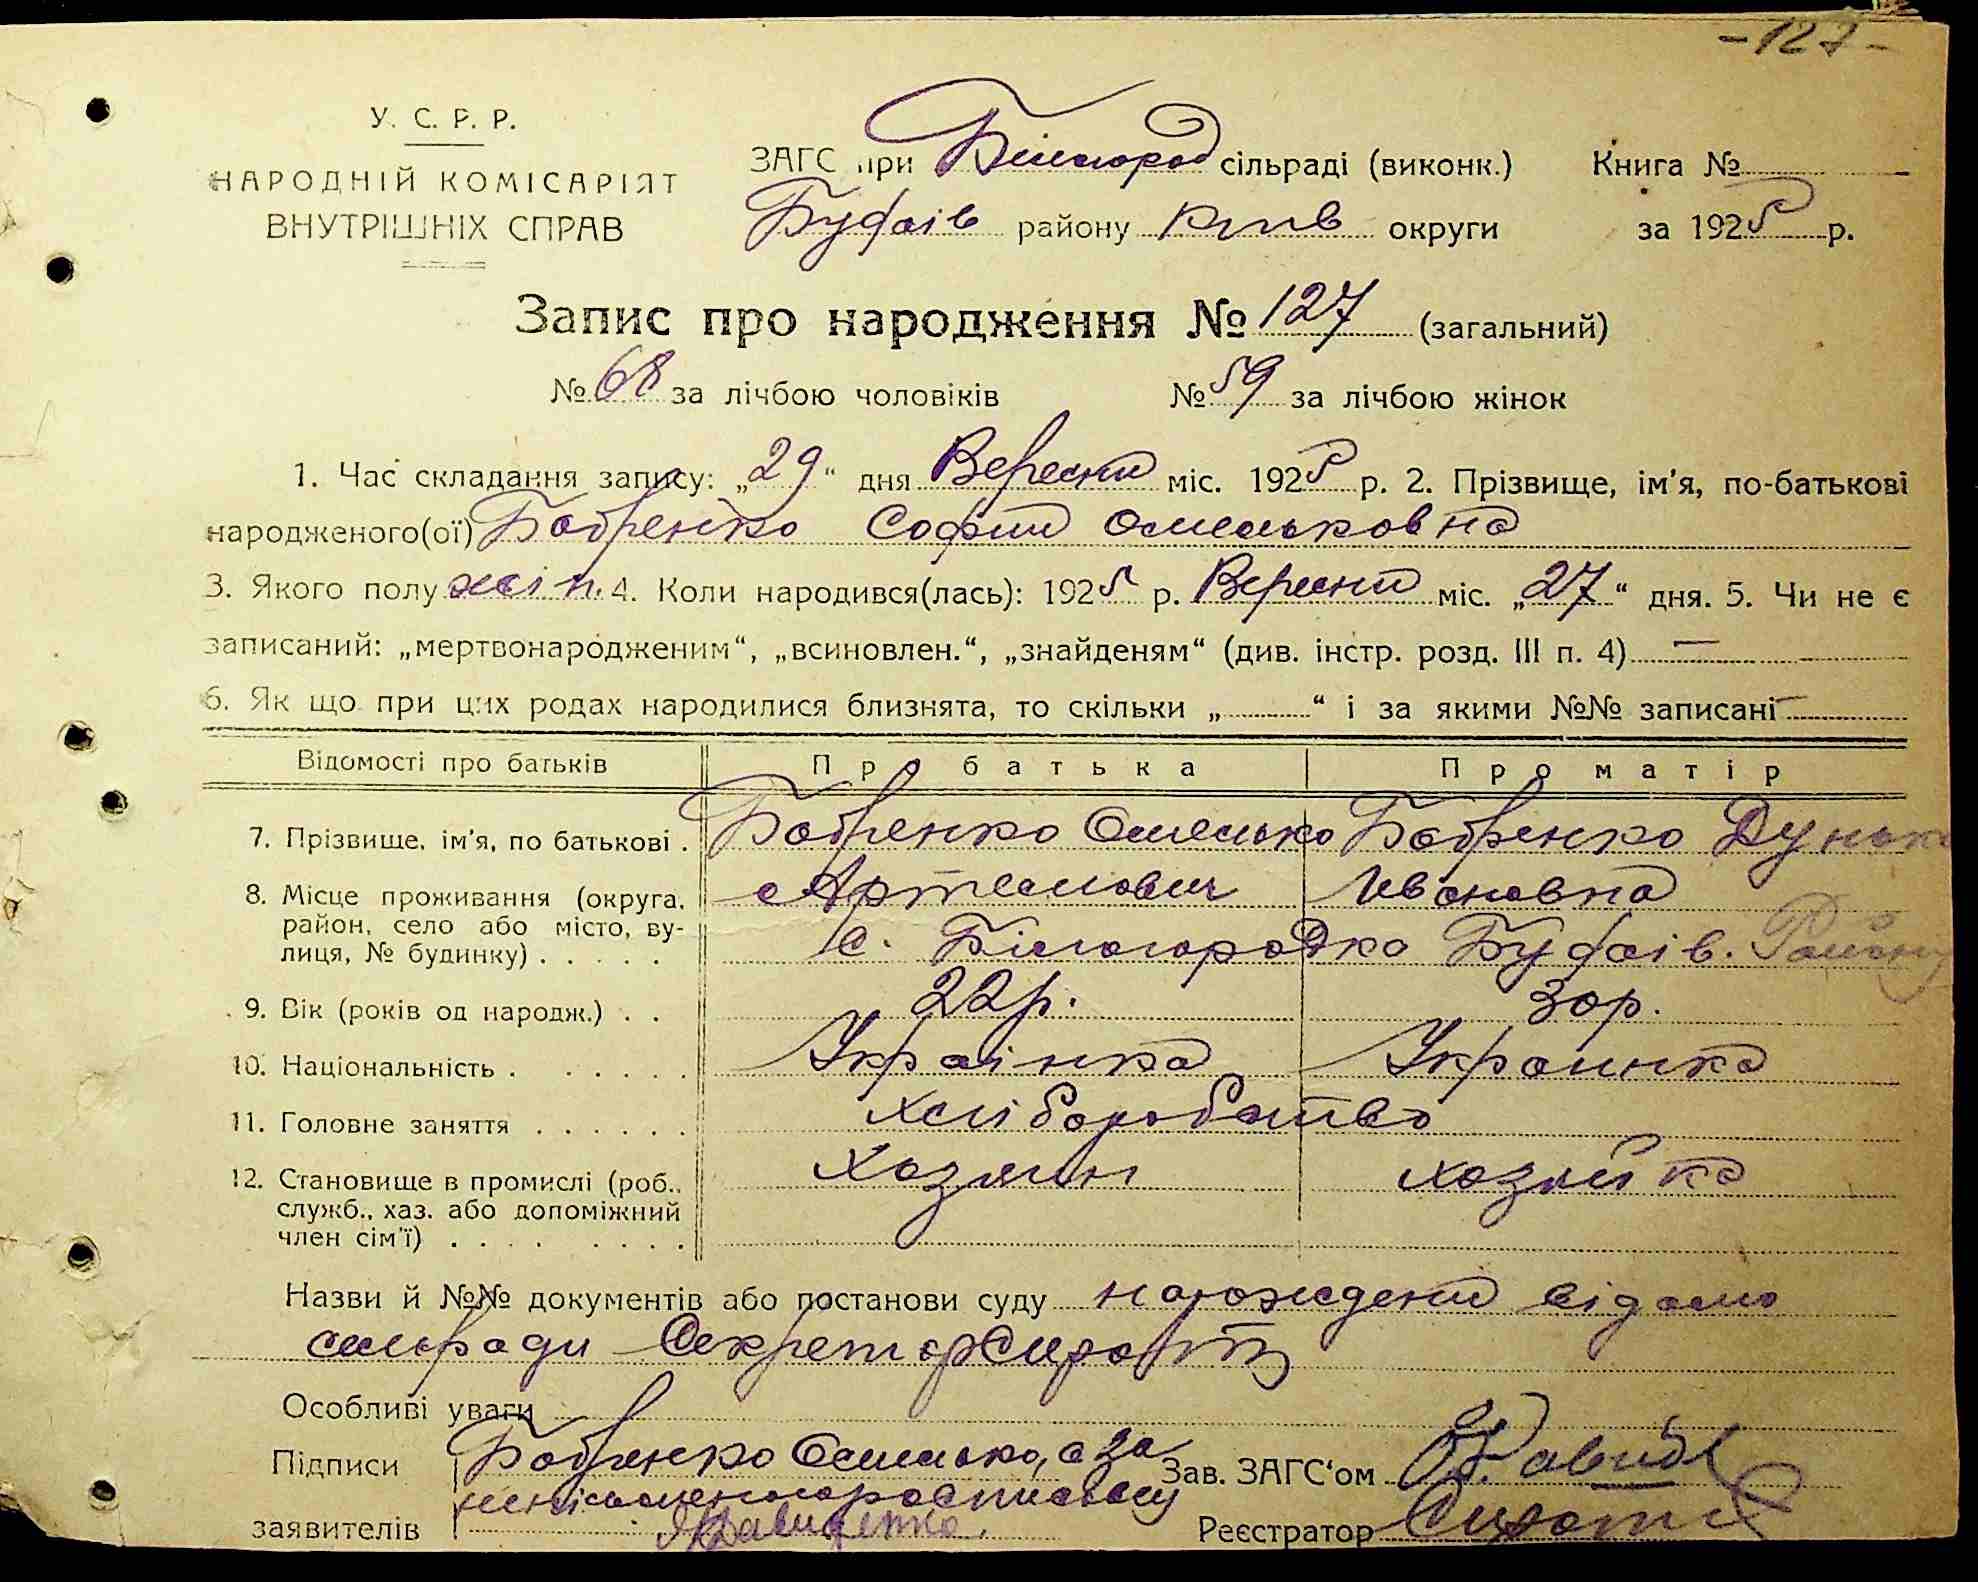 -127-
У. С. Р. Р.
НАРОДНІЙ КОМІСАРІЯТ
ВНУТРІШНІХ СПРАВ
ЗАГС при Білогород сільраді (виконк.) Книга №
Будаїв району Київ округи за 1925 р.
Запис про народження № 127 (загальний)
№ 68 за лічбою чоловіків № 59 за лічбою жінок
1. Час складання запису: „29“ дня Вересня міс. 1925 р. 2. Прізвище, ім’я, по-батькові
народженого(ої) Бобренко София Омельковна
3. Якого полу жін. 4. Коли народився(лась): 1925 р. Вересня міс. „27“ дня. 5. Чи не є
записаний: „мертвонародженим“, „всиновлен.“, „знайденям“ (див. інстр. розд. III п. 4) —
6. Як що при цих родах народилися близнята, то скільки „ “ і за якими №№ записані
Відомості про батьків Про батька Про матір
7. Прізвище, ім’я, по батькові . Бобренко Омелько Бобренко Дунька
Артемович Ивановна
8. Місце проживання (округа, район, село або місто, вулиця, № будинку) . . . . . с. Білогородка Будаїв. Району
9. Вік (років од народж.) . . 22 р. 30 р.
10. Національність . . . . . . Українка Украинка
11. Головне заняття . . . . . . Хліборобство
12. Становище в промислі (роб., служб., хаз. або допоміжний член сім’ї) . . . . . . . . Хозяин хозяйка
Назви й №№ документів або постанови суду народження відомо
сельради Секретар Сирота
Особливі уваги
Підписи Бобренко Омелько, а за
неписьменного росписався
заявителів
Зав. ЗАГС‘ом
Реєстратор Сирота